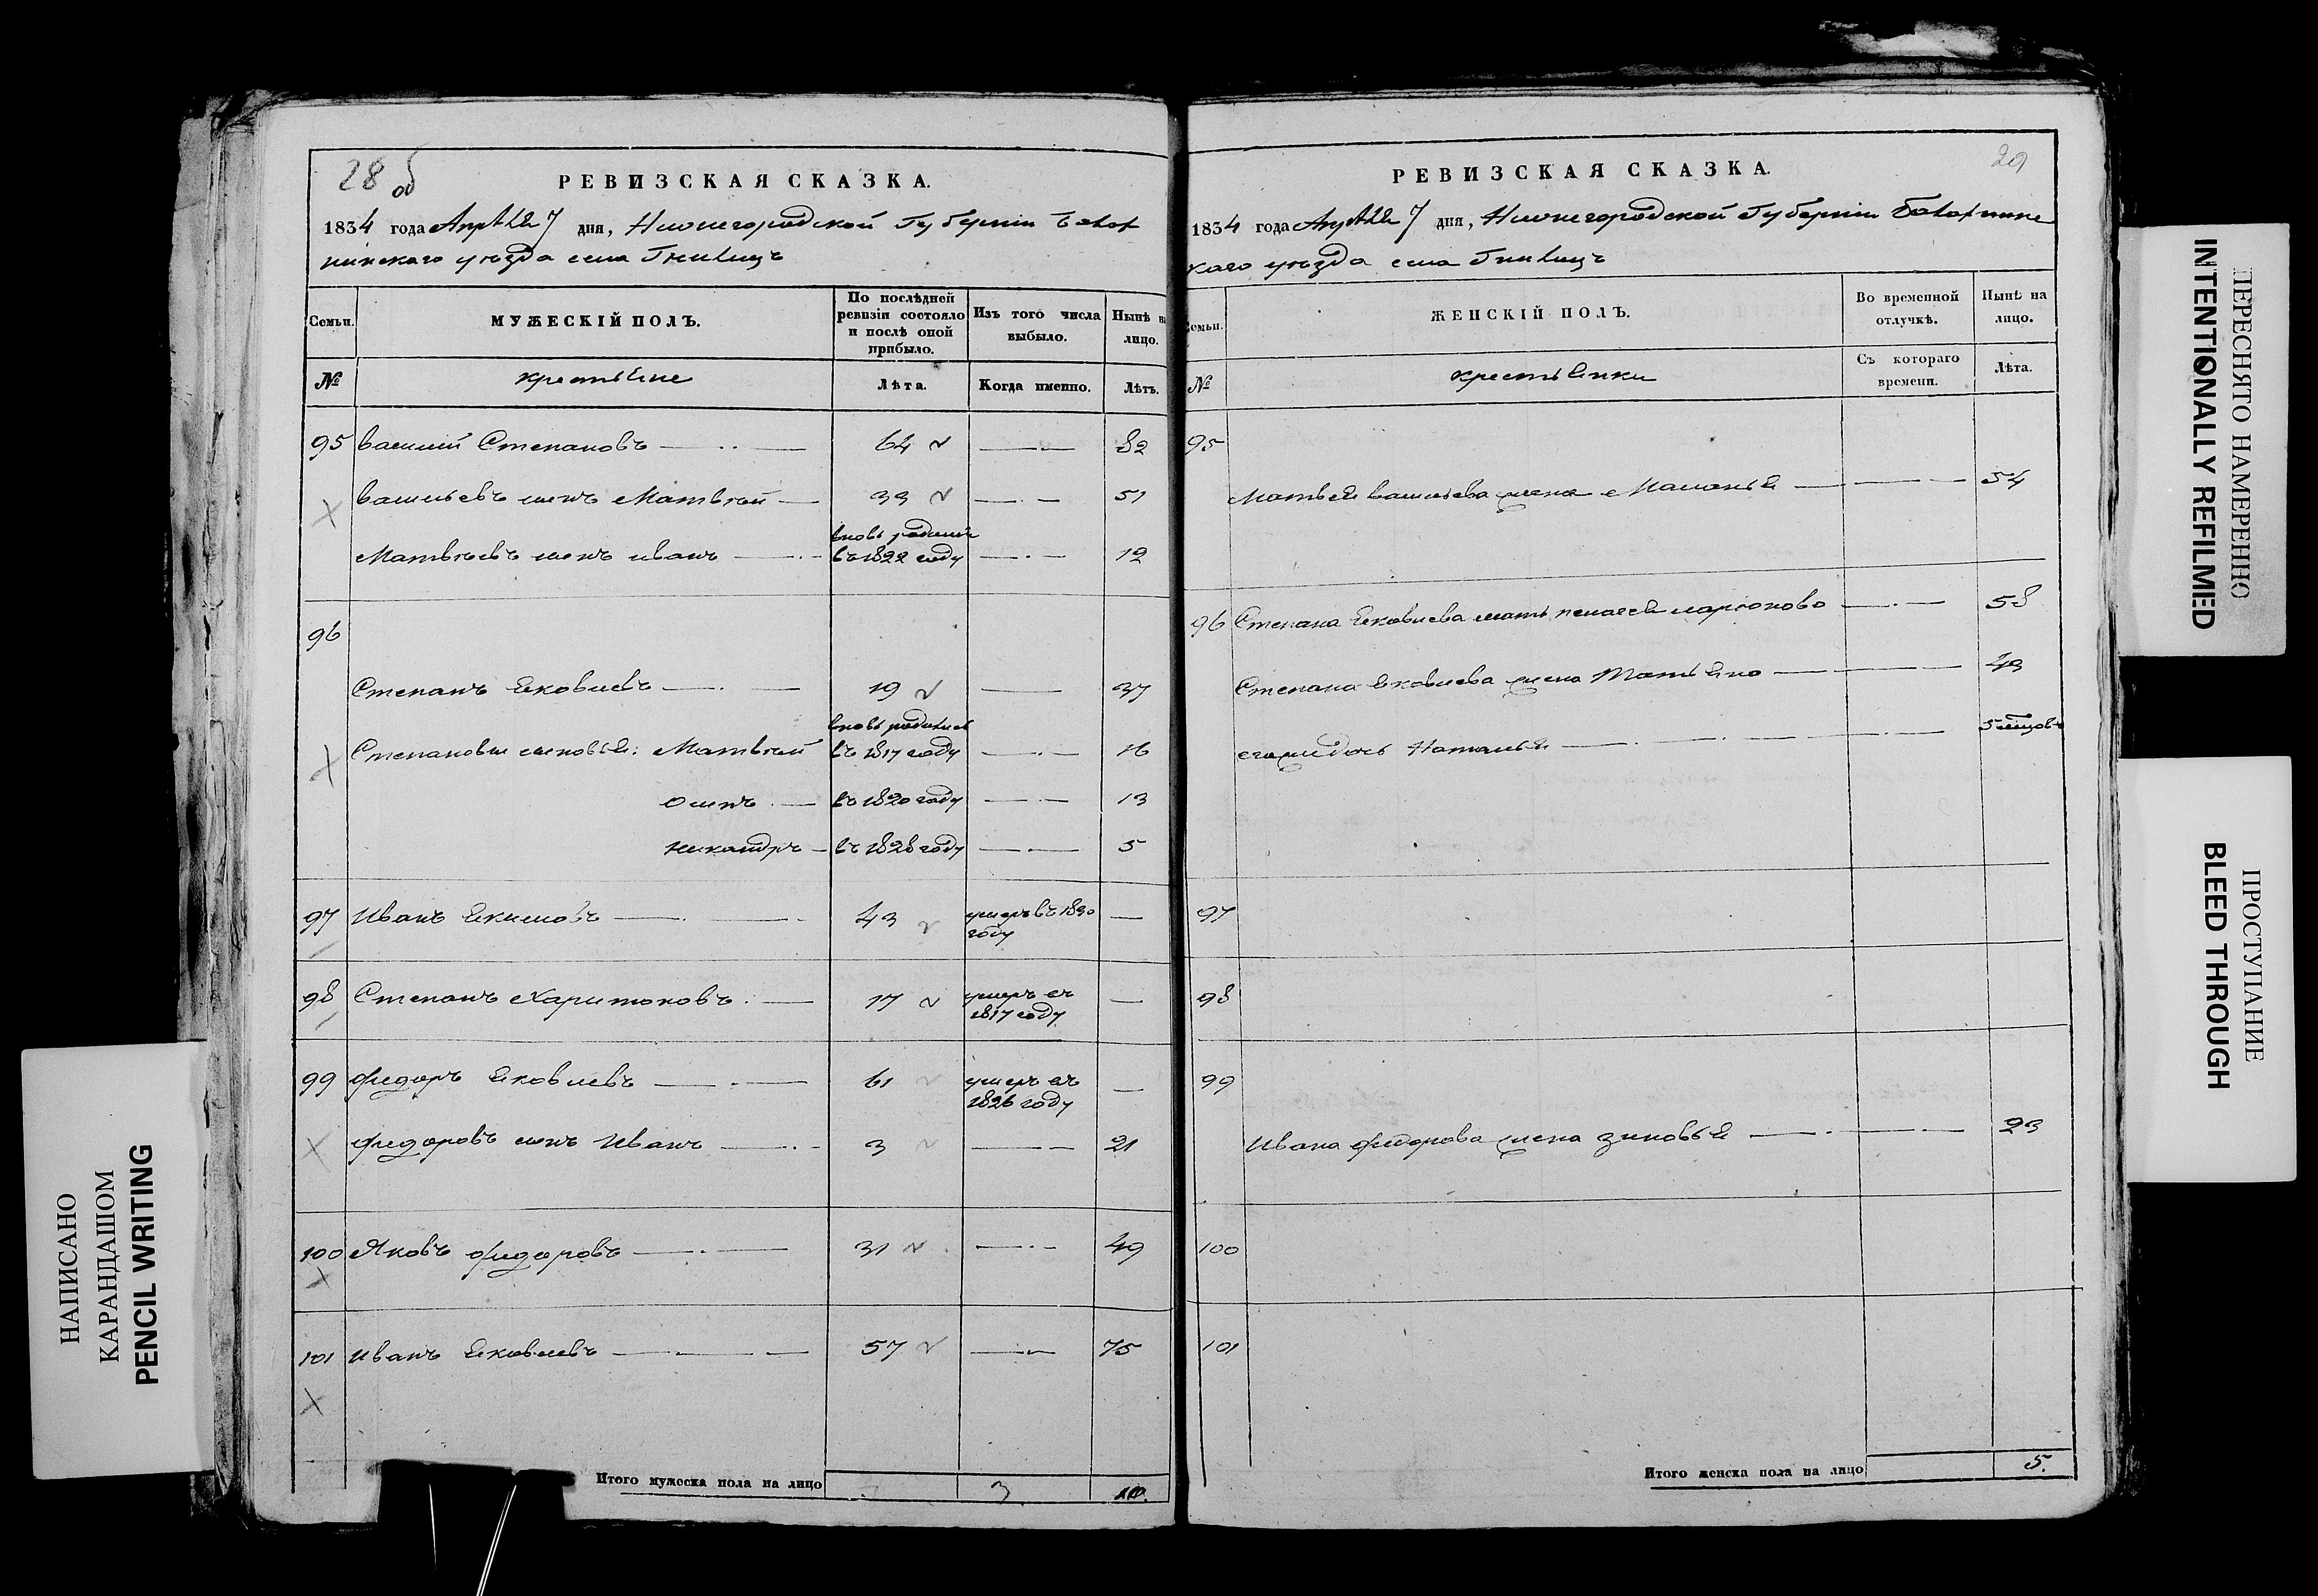 28 об
РЕВИЗСКАЯ СКАЗКА.
1834 года Апреля 7 дня, Нижегородской Губернии Балах
нинскаго уезда села Гнилицъ
Семьи.
МУЖЕСКІЙ ПОЛЪ.
По послѣдней ревизіи состояло и послѣ оной прибыло.
Изъ того числа выбыло.
Нынѣ на лицо.
№
крестьяне
Лѣта.
Когда именно.
Лѣтъ.
95 Василий Степановъ 64 82
Васильевъ сынъ Матвѣй 33 51
Матвѣевъ сынъ иванъ вновь рожденный въ 1822 году 12
96
Степанъ Яковлевъ 19 37
Степановы сыновья: Матвѣй вновь родились въ 1817 году 16
Осипъ въ 1820 году 13
никандръ въ 1828 году 5
97 Иванъ Якимовъ 43 умеръ въ 1830 году
98 Степанъ Харитоновъ 17 умеръ въ 1817 году
99 Федоръ Яковлевъ 61 умеръ въ 1826 году
Федоровъ сынъ Иванъ 3 21
100 Яковъ Федоровъ 31 49
101 иванъ Яковлевъ 57 75
Итого мужеска пола на лицо 3 10.
29
РЕВИЗСКАЯ СКАЗКА.
1834 года Апреля 7 дня, Нижегородской Губернии Балахнинс
каго уезда села Гнилицъ
Семьи.
ЖЕНСКІЙ ПОЛЪ.
Во временной отлучкѣ.
Нынѣ на лицо.
№
крестьянки
Съ котораго времени.
Лѣта.
95
Матвея Васильева жена Маланья 54
96 Степана Яковлева мать пелагея ларионова 58
Степана Яковлева жена Татьяна 43
его же дочь Наталья 5 месцовъ
97
98
99
Ивана Федорова жена зиновья 23
100
101
Итого женска пола на лицо 5.
НАПИСАНО
КАРАНДАШОМ
PENCIL WRITING
ПЕРЕСНЯТО НАМЕРЕННО
INTENTIONALLY REFILMED
ПРОСТУПАНИЕ
BLEED THROUGH